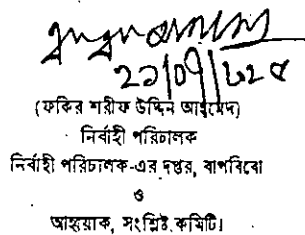 (ফকির শরীফ উদ্দিন আহমেদ)
নির্বাহী পরিচালক
নির্বাহী পরিচালক-এর দপ্তর, বাপবিবো
ও
আহ্বায়ক, সংশ্লিষ্ট কমিটি।